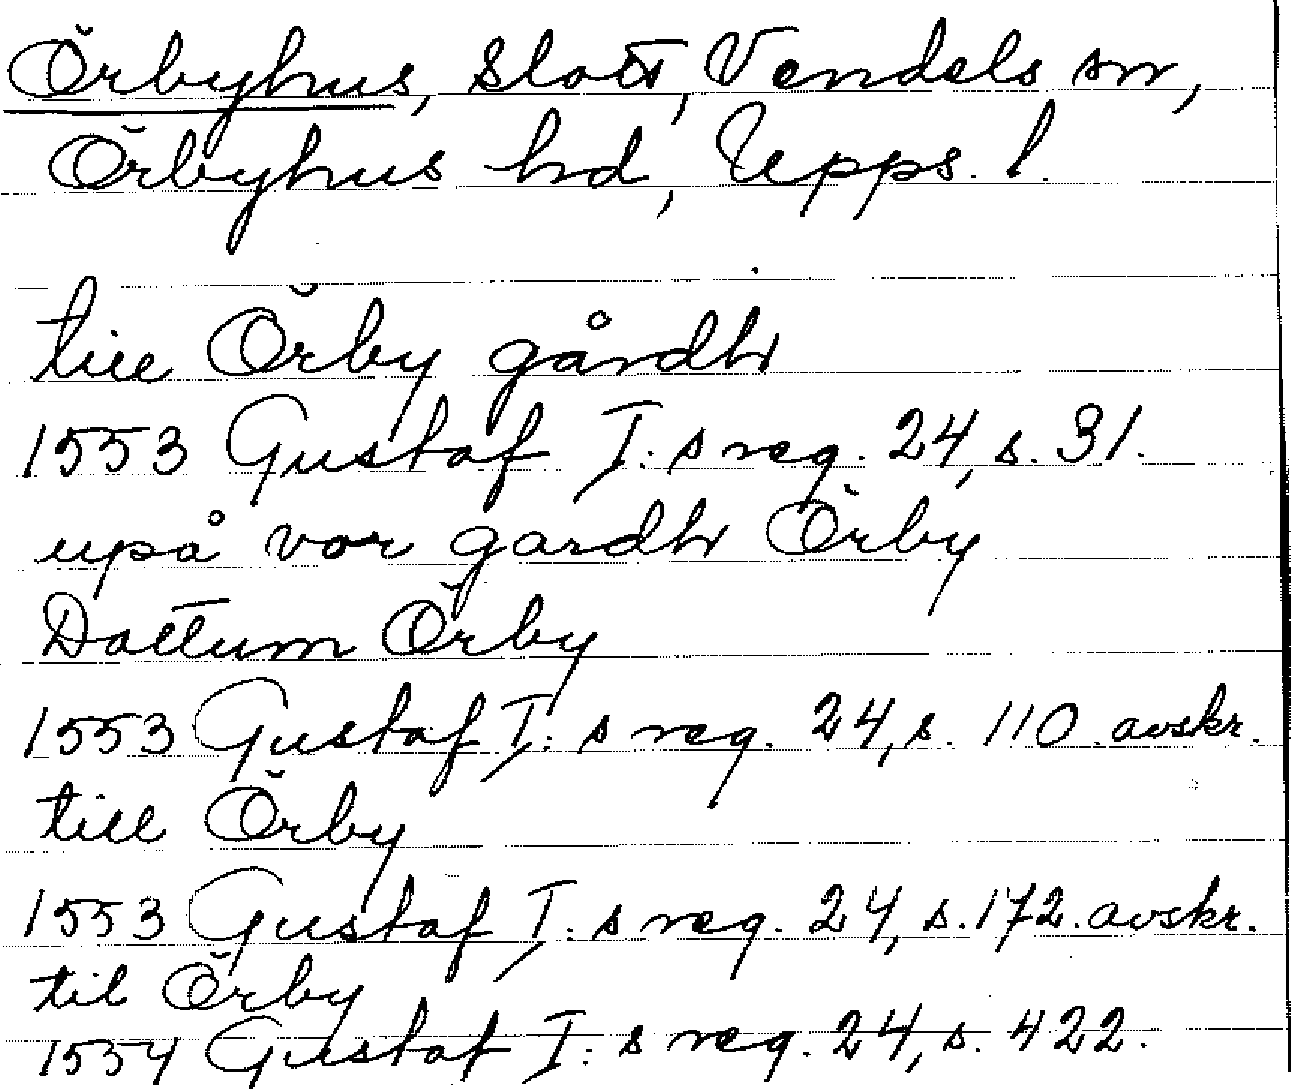 Örbyhus, slott, Vendels sn,
Örbyhus hd, Upps. l.
till Örby gårdh
1553 Gustaf I:s reg. 24, s. 31.
upå vor gardh Örby
Dattum Örby
1553 Gustaf I:s reg. 24, s. 110. avskr.
till Örby
1553 Gustaf I:s reg. 24, s. 172. avskr.
til Örby
1554 Gustaf I:s reg. 24, s. 422.